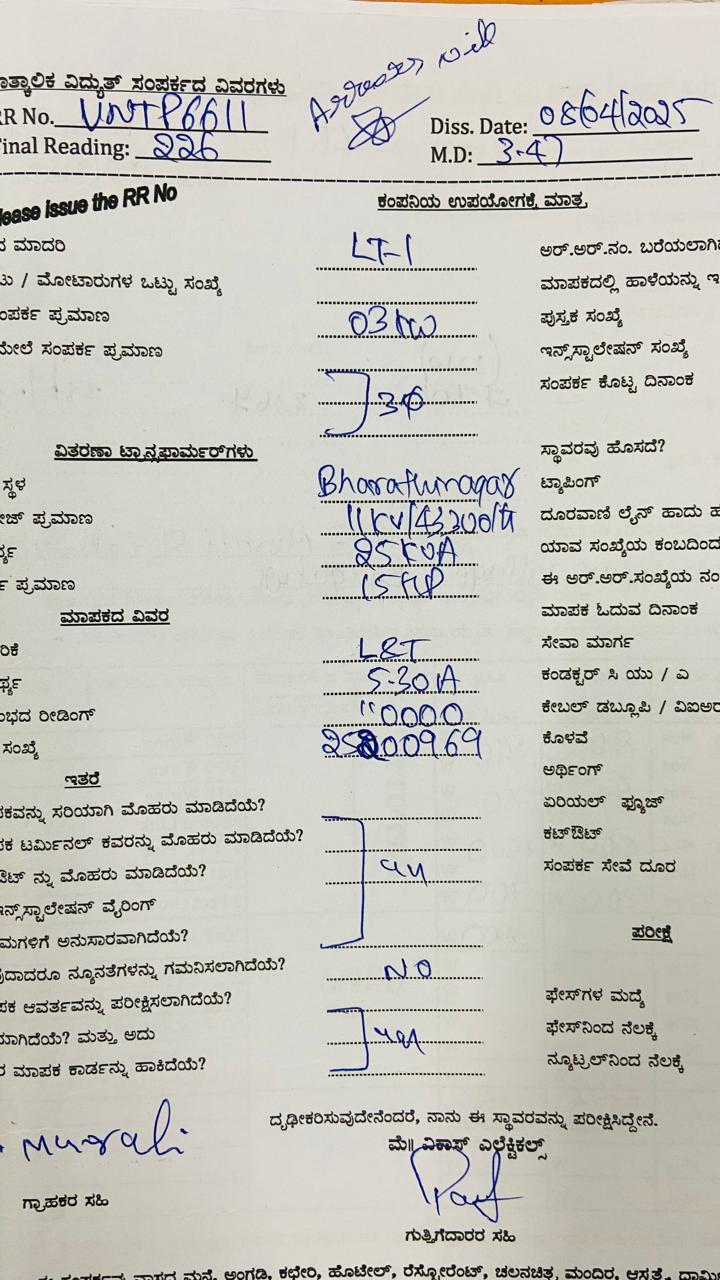 ತ್ಕಾಲಿಕ ವಿದ್ಯುತ್ ಸಂಪರ್ಕದ ವಿವರಗಳು
RR No. VVNTP6611
Final Reading: 226
Diss. Date: 08/04/2025
M.D: 3.47
lease issue the RR No
ಕಂಪನಿಯ ಉಪಯೋಗಕ್ಕೆ ಮಾತ್ರ
ಮಾದರಿ LT-1
/ ಮೋಟಾರುಗಳ ಒಟ್ಟು ಸಂಖ್ಯೆ
ಂಪರ್ಕ ಪ್ರಮಾಣ 03 kw
ಮೇಲೆ ಸಂಪರ್ಕ ಪ್ರಮಾಣ
3φ
ವಿತರಣಾ ಟ್ರಾನ್ಸಫಾರ್ಮರ್‌ಗಳು
ಸ್ಥಳ Bharathinagar
ೇಜ್ ಪ್ರಮಾಣ 11kv/433
25KVA
ಪ್ರಮಾಣ 15HP
ಮಾಪಕದ ವಿವರ
L&T
5-30A
ಂಭದ ರೀಡಿಂಗ್ 0000
ಸಂಖ್ಯೆ 00969
ಇತರೆ
ಪಕವನ್ನು ಸರಿಯಾಗಿ ಮೊಹರು ಮಾಡಿದೆಯೆ?
ಪಕ ಟರ್ಮಿನಲ್ ಕವರನ್ನು ಮೊಹರು ಮಾಡಿದೆಯೆ?
ಔಟ್ ನ್ನು ಮೊಹರು ಮಾಡಿದೆಯೆ?
ಇನ್ಸ್‌ಸ್ಟಾಲೇಷನ್ ವೈರಿಂಗ್
ಮಗಳಿಗೆ ಅನುಸಾರವಾಗಿದೆಯೆ?
ವುದಾದರೂ ನ್ಯೂನತೆಗಳನ್ನು ಗಮನಿಸಲಾಗಿದೆಯೆ? NO
ಪಕ ಆವರ್ತವನ್ನು ಪರೀಕ್ಷಿಸಲಾಗಿದೆಯೆ?
ಯಾಗಿದೆಯೆ? ಮತ್ತು ಅದು
ಮಾಪಕ ಕಾರ್ಡನ್ನು ಹಾಕಿದೆಯೆ?
ಅರ್.ಅರ್.ನಂ. ಬರೆಯಲಾಗಿದೆ
ಮಾಪಕದಲ್ಲಿ ಹಾಳೆಯನ್ನು ಇ
ಪುಸ್ತಕ ಸಂಖ್ಯೆ
ಇನ್ಸ್‌ಸ್ಟಾಲೇಷನ್ ಸಂಖ್ಯೆ
ಸಂಪರ್ಕ ಕೊಟ್ಟ ದಿನಾಂಕ
ಸ್ಥಾವರವು ಹೊಸದೆ?
ಟ್ಯಾಪಿಂಗ್
ದೂರವಾಣಿ ಲೈನ್ ಹಾದು ಹ
ಯಾವ ಸಂಖ್ಯೆಯ ಕಂಬದಿಂದ
ಈ ಅರ್.ಅರ್.ಸಂಖ್ಯೆಯ ನಂ
ಮಾಪಕ ಓದುವ ದಿನಾಂಕ
ಸೇವಾ ಮಾರ್ಗ
ಕಂಡಕ್ಟರ್ ಸಿ ಯು / ಎ
ಕೇಬಲ್ ಡಬ್ಲೂಪಿ / ವಿಐಅರ
ಕೊಳವೆ
ಅರ್ಥಿಂಗ್
ಏರಿಯಲ್ ಫ್ಯೂಜ್
ಕಟ್‌ಔಟ್
ಸಂಪರ್ಕ ಸೇವೆ ದೂರ
ಪರೀಕ್ಷೆ
ಫೇಸ್‌ಗಳ ಮದ್ಯೆ
ಫೇಸ್‌ನಿಂದ ನೆಲಕ್ಕೆ
ನ್ಯೂಟ್ರಲ್‌ನಿಂದ ನೆಲಕ್ಕೆ
ದೃಢೀಕರಿಸುವುದೇನೆಂದರೆ, ನಾನು ಈ ಸ್ಥಾವರವನ್ನು ಪರೀಕ್ಷಿಸಿದ್ದೇನೆ.
ಮೆ॥ ವಿಕಾಸ್ ಎಲೆಕ್ಟ್ರಿಕಲ್ಸ್
Murali
ಗ್ರಾಹಕರ ಸಹಿ
ಗುತ್ತಿಗೆದಾರರ ಸಹಿ
ಅಂಗಡಿ, ಕಛೇರಿ, ಹೊಟೇಲ್, ರೆಸ್ಟೋರೆಂಟ್, ಚಲನಚಿತ್ರ, ಮಂದಿರ, ಆಸ್ಪತ್ರೆ,